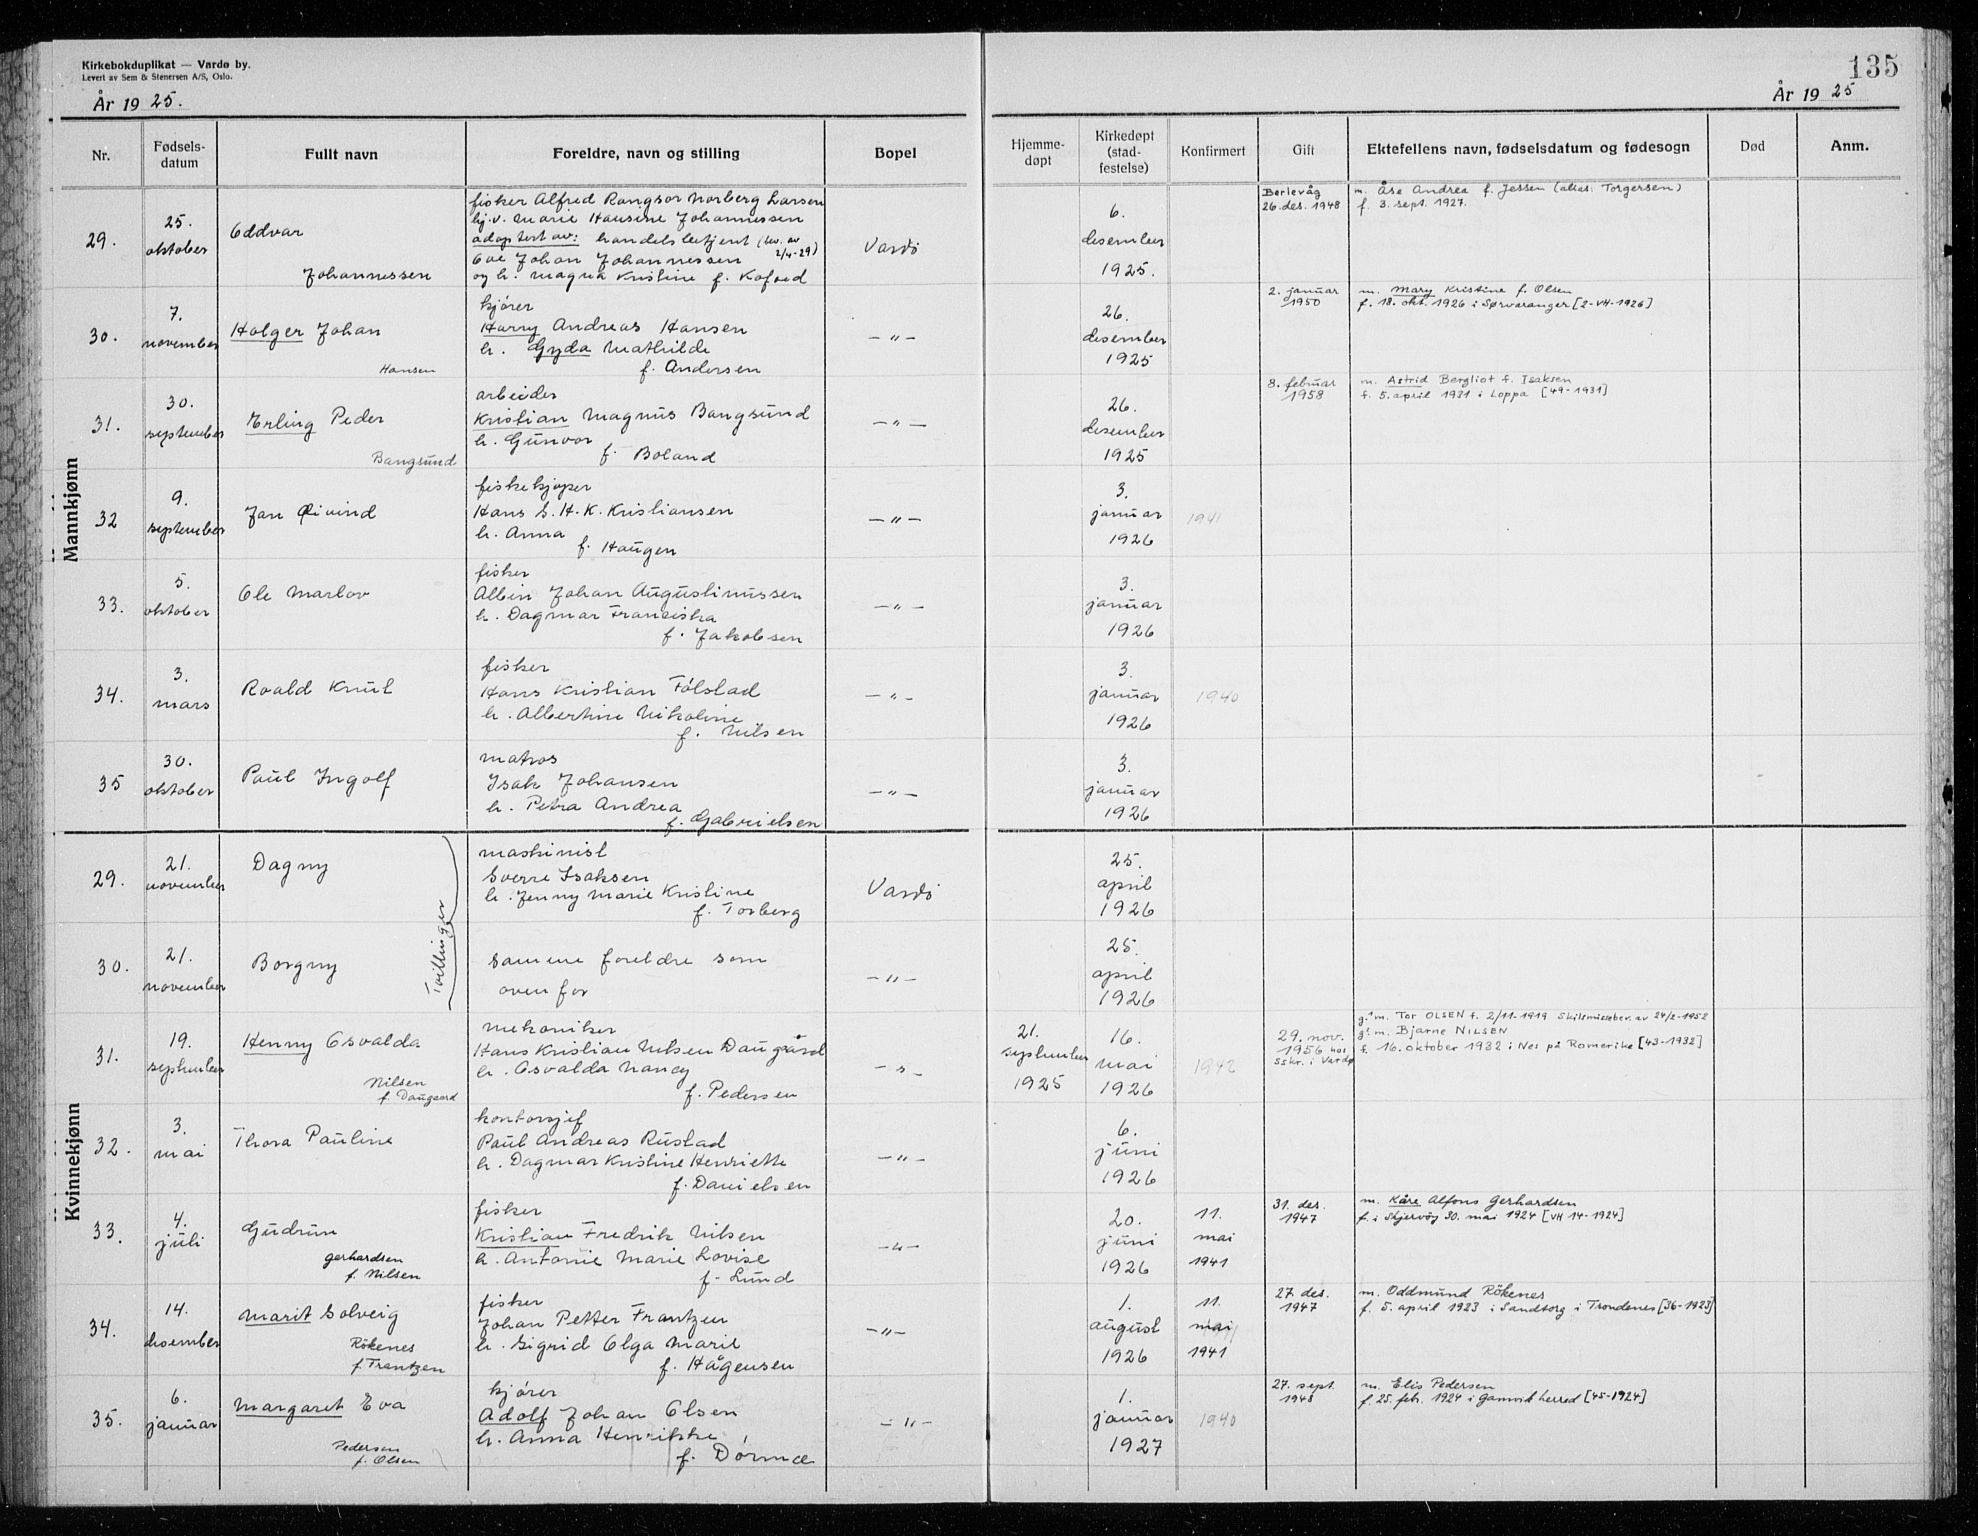 Kirkebokduplikat — Vardø by.
Levert av Sem & Stenersen A/S, Oslo.
År 1925.
135
År 1925
Nr.
Fødsels-
datum
Fullt navn
Foreldre, navn og stilling
Bopel
Hjemme-
døpt
Kirkedøpt
(stad-
festelse)
Konfirmert
Gift
Ektefellens navn, fødselsdatum og fødesogn
Død
Anm.
Mannkjønn
29.
25.
oktober
Oddvar
Johannessen
fisker Alfred Norberg Larsen
Marie Hansine Johannessen
adoptert av: handelsbetjent (bev. av
Ove Johan Johannessen 2/4-29)
og h. Magna Kristine f. Kofoed
Vardö
6.
desember
1925.
Berlevåg
26. des. 1948
m. Åse Andrea f. Jessen (alias: Torgersen)
f. 3. sept. 1927.
30.
7.
november
Holger Johan
Hansen
kjører
Harry Andreas Hansen
h. Gyda Mathilde
f. Andersen
— " —
26.
desember
1925
2. januar
1950
m. Mary Kristine f. Olsen
f. 18. okt. 1926 i Sørvaranger [2-VH-1926]
31.
30.
september
Erling Peder
Bangsund
arbeider
Kristian Magnus Bangsund
h. Gunvor
f. Boland
— " —
26.
desember
1925
8. februar
1958
m. Astrid Bergliot f. Isaksen
f. 5. april 1931 i Loppa [49-1931]
32
9.
september
Jan Øivind
fiskekjøper
Hans S. H. K. Kristiansen
h. Anna
f. Haugen
— " —
3.
januar
1926
1941
33.
5.
oktober
Ole Marlov
fisker
Albin Johan Augustinussen
h. Dagmar Franciska
f. Jakobsen
— " —
3.
januar
1926
34.
3.
mars
Roald Knut
fisker
Hans Kristian Fölstad
h. Albertine Nikoline
f. Nilsen
— " —
3.
januar
1926
1940
35
30.
oktober
Paul Ingolf
matros
Isak Johansen
h. Petra Andrea
f. Gabrielsen
— " —
3.
januar
1926
Kvinnekjønn
29.
21.
november
Dagny
Tvillinger
maskinist
Sverre Isaksen
h. Jenny Marie Kristine
f. Torberg
Vardö
25.
april
1926
30.
21.
november
Borgny
Samme foreldre som
ovenfor
— " —
25.
april
1926
31.
19.
september
Henny Osvalda
Nilsen
f. Daugaard
mekaniker
Hans Kristian Nilsen Daugård
h. Osvalda Nancy
f. Pedersen
— " —
21.
september
1925
16.
mai
1926
1942
29. nov.
1956 hos
sskr. i Vardø
g.¹ m. Tor OLSEN f. 2/11-1919 Skilsmissebev. av 24/2-1952
g.² m. Bjarne NILSEN
f. 16. oktober 1932 i Nes på Romerike [43-1932]
32.
3.
mai
Thora Pauline
kontorsjef
Paul Andreas Rustad
h. Dagmar Kristine Henriette
f. Danielsen
— " —
6.
juni
1926
33.
4.
juli
Gudrun
Gerhardsen
f. Nilsen
fisker
Kristian Fredrik Nilsen
h. Antonie Marie Lovise
f. Lund
— " —
20.
juni
1926
11.
mai
1941
31. des.
1947
m. Kåre Alfons Gerhardsen
f. i Skjervöy 30. mai 1924 [VH 14-1924]
34.
14.
desember
Marit Solveig
Rökenes
f. Frantzen
fisker
Johan Petter Frantzen
h. Sigrid Olga Marie
f. Hågensen
— " —
1.
august
1926
11.
mai
1941
27 des.
1947
m. Oddmund Rökenes
f. 5. april 1923 i Sandtorg i Trondenes [36-1923]
35.
6.
januar
Margaret Eva
Pedersen
f. Olsen
kjører
Adolf Johan Olsen
h. Anna Henrikke
f.
— " —
1.
januar
1927
1940
27. sept.
1948
m. Elis Pedersen
f. 25. feb. 1924 i Gamvik herred [45-1924]